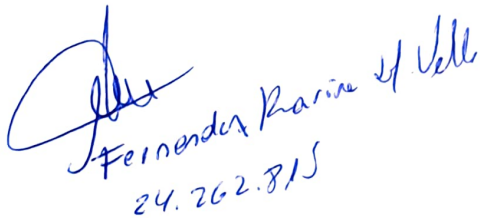 Fernandez Karina del Valle
24.262.815